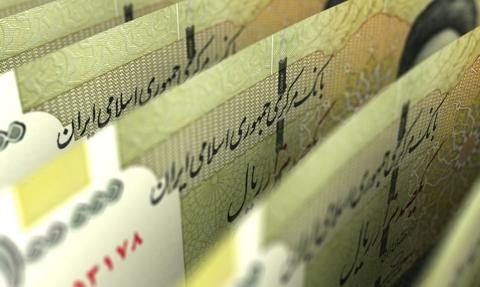 بانک مرکزی جمهوری اسلامی ایران
بانک مرکزی جمهوری اسلامی ایران
ریال
بانک مرکزی جمهوری اسلامی ایران
یکصد هزار ریال
۳۱۷۸